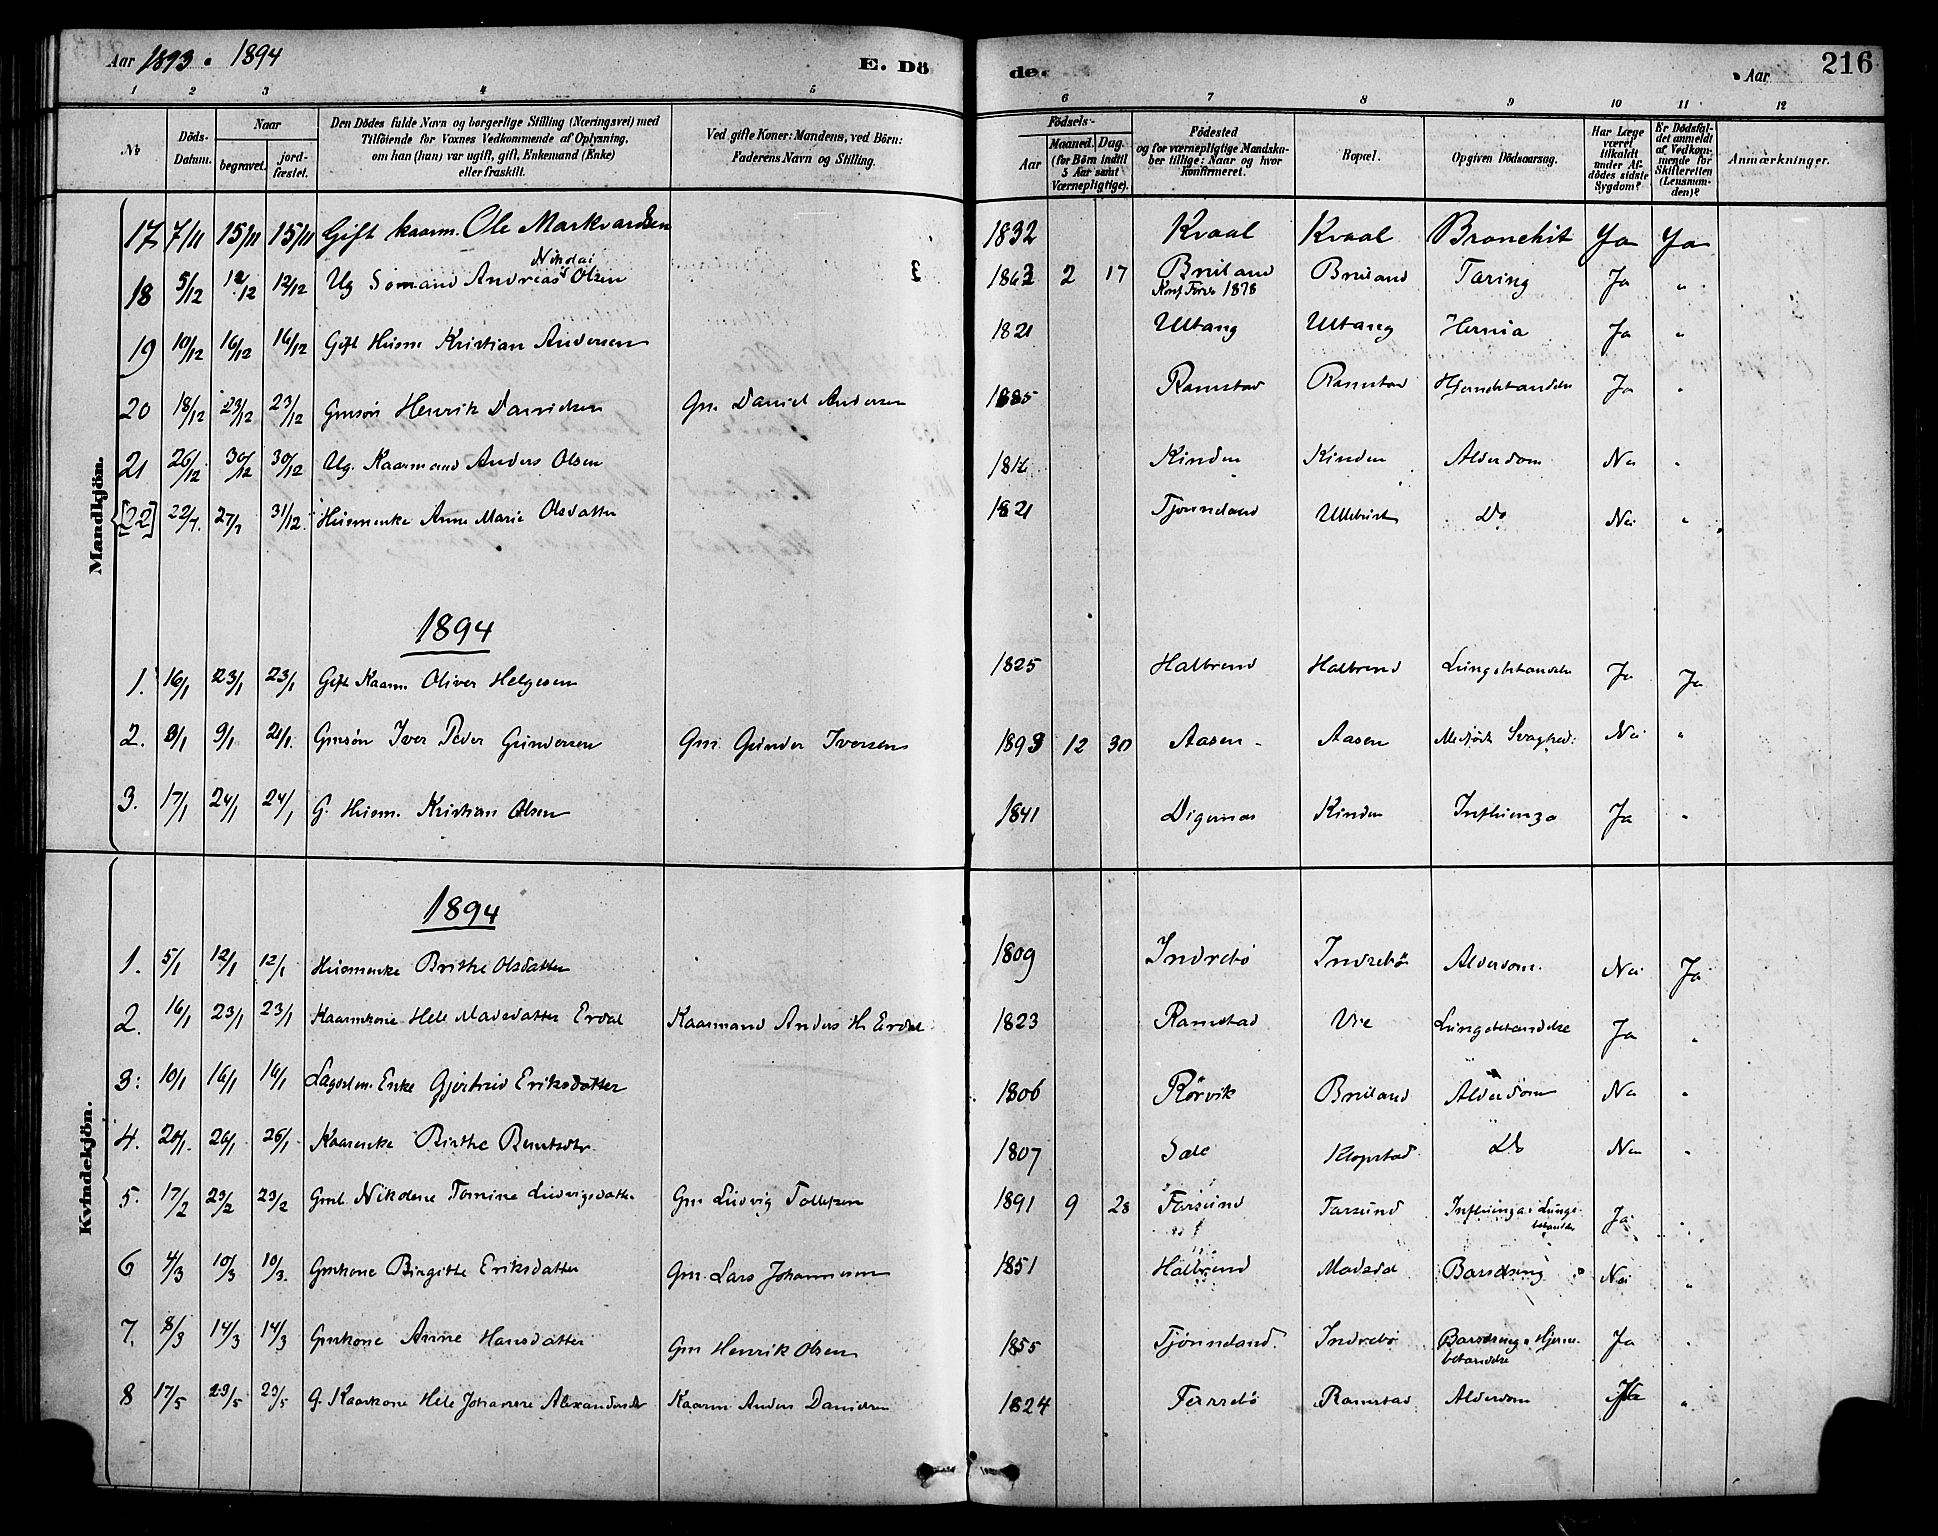 Aar 1893. 1894 E. Döde. Aar 216
1 2 3 4 5 6 7 8 9 10 11 12
№ Döds-Datum. Naar begravet. jord-fæstet. Den Dödes fulde Navn og borgerlige Stilling (Næringsvei) med Tilföiende for Voxnes Vedkommende af Oplysning, om han (hun) var ugift, gift, Enkemand (Enke) eller fraskilt. Ved gifte Koner: Mandens, ved Börn: Faderens Navn og Stilling. Födsels- Aar Maaned. Dag. (for Börn indtil 5 Aar samt Værnepligtige). Födested og for værnepligtige Mandskaber tillige: Naar og hvor konfirmeret. Bopæl. Opgiven Dödsaarsag. Har Læge været tilkaldt under Afdödes sidste Sygdom? Er Dödsfaldet anmeldt af Vedkommende for Skifteretten (Lensmanden)? Anmærkninger.
Mandkjön.
17 7/11 15/11 15/11 Gift kaarm. Ole Markvardsen 1832 Kvaal Kvaal Bronchit Ja Ja
Nikolai
18 5/12 12/12 12/12 Ug Sömand Andreas Olsen 1863 2 17 Bruland Bruland Tæring Ja "
Konf Förde 1878
19 10/12 16/12 16/12 Gift Husm Kristian Andersen 1821 Ultang Ultang Hernia Ja "
20 18/12 23/12 23/12 Gmsön Henrik Danielsen Gm Daniel Andersen 1885 Ramstad Ramstad Hjernebetændelse Ja "
21 26/12 30/12 30/12 Ug. Kaarmand Anders Olsen Kinden Kinden Alderdom Nei "
[22] 22/7. 27/7 31/12. Husmenke Anne Marie Olsdatter 1821 Tjönneland Do Nei "
1894
1. 16/1 23/1 23/1 Gift Kaarm Oliver Helgesen 1825 Halbrend Halbrend Lungebetændelse Ja Ja
2. 9/1 21/1. Gmsön Iver Peder Gundersen Gm Gunder Iversen 1893 12 30 Aasen Aasen Medfödt Svaghed. Nei "
3. 17/1 24/1 24/1 G. Husm. Kristian Olsen 1841 Digernæs Kinden Influenza Ja "
Kvindekjön.
1894
1. 5/1 12/1 12/1 Husmenke Birthe Olsdatter 1809 Indrebö Indrebö Alderdom. Nei Ja
2. 16/1 23/1 23/1 Kaarmkone Hele Madsdatter Erdal Kaarmand Anders H. Erdal 1823 Ramstad Vie Lungebetændelse Ja "
3. 10/1 16/1 16/1 Enke Gjertrud Eriksdatter 1806 Rörvik Bruland Alderdom Nei "
4. 20/1. 26/1 26/1 Kaarenke Birthe Bentsdtr 1807 Sæle Klopstad Do Nei "
5. 17/2 23/2 23/2 Gmd. Nikoline Tomine Ludvigsdatter Gm Ludvig Tollefsen 1891 9 28 Farsund Farsund Influenza i Lunge- Ja "
betændelse
6 4/3 10/3 10/3. Gmkone Birgitte Eriksdatter Gm. Lars Johannesen 1851 Halbrend Madsdal Barselseng Nei "
7. 8/3 14/3 14/3 Gmkone Anne Hansdatter Gm Henrik Olsen 1855 Tjönneland. Indrebö Barselseng, Hjerne- Ja "
betændelse
8 17/5 23/5 23/5 G. Kaarkone Hele Johanne Alexandersdtr Kaarm Anders Danielsen 1824 Farsebö Ramstad Alderdom Ja "